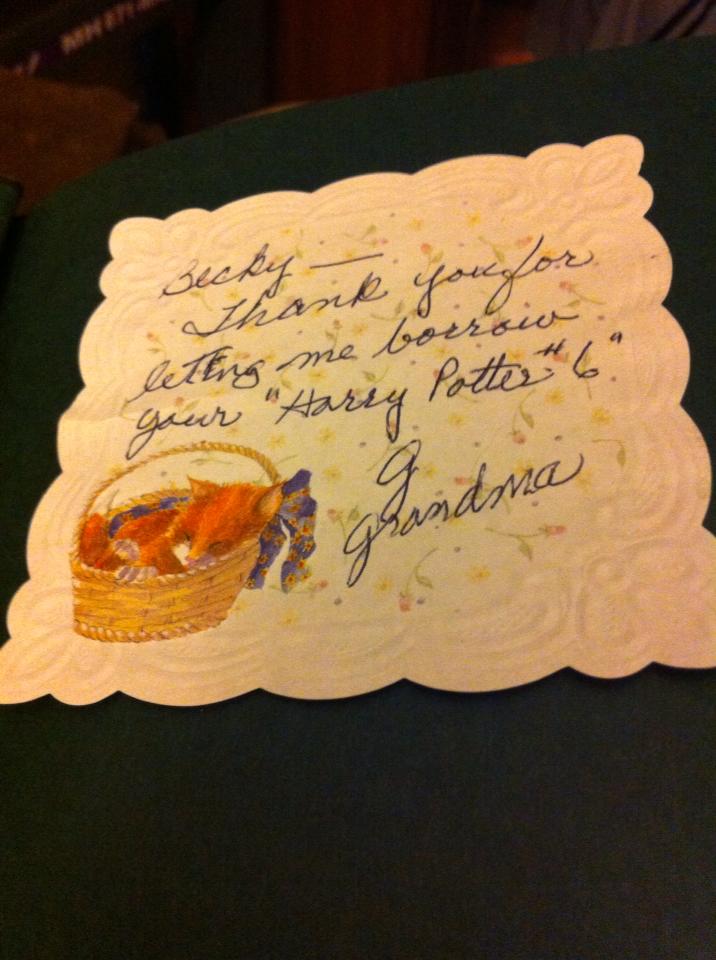 Becky —
Thank you for
letting me borrow
your "Harry Potter #6"
G
Grandma